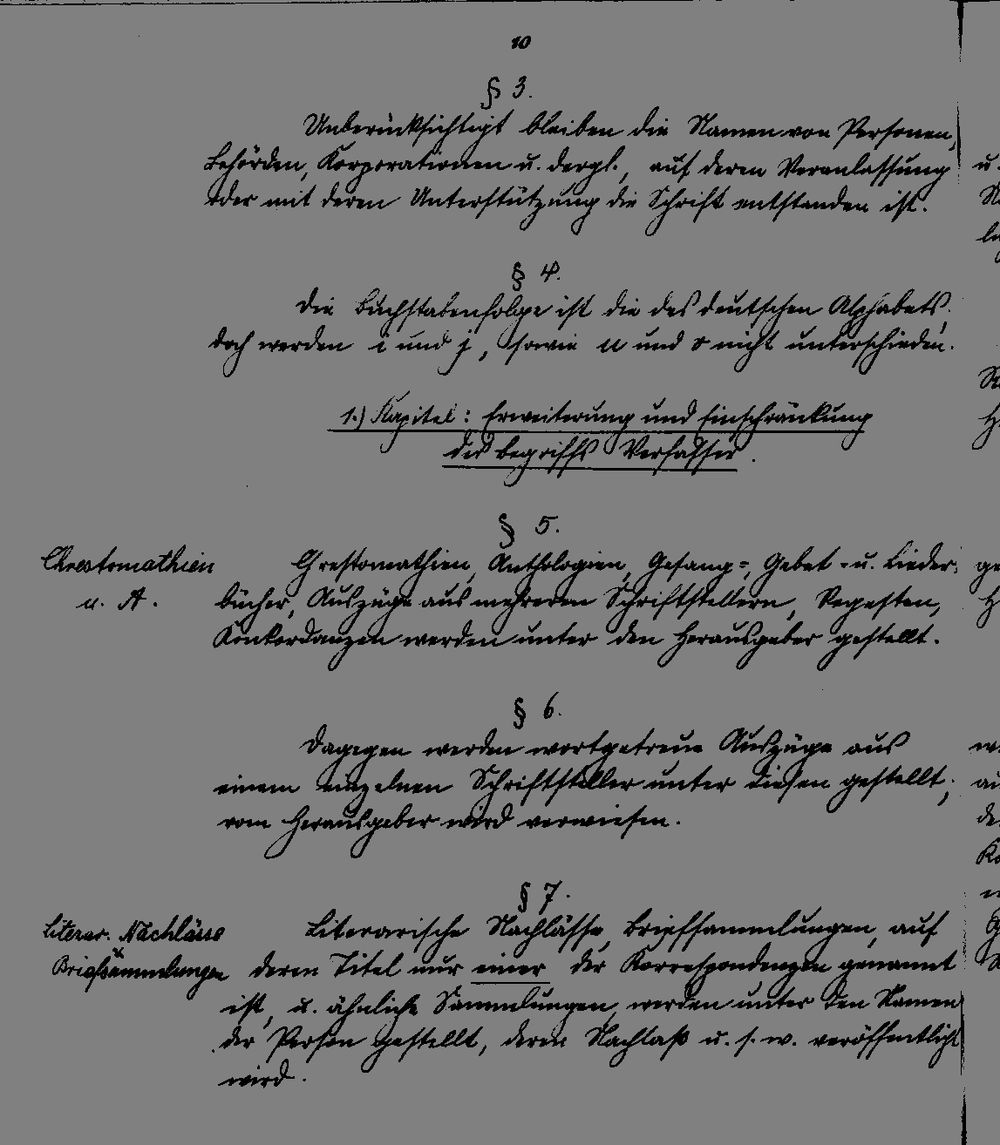 10
§ 3.
Unberücksichtigt bleiben die Namen von Personen,
Behörden, Korporationen u. dergl., auf deren Veranlassung
oder mit deren Unterstützung die Schrift entstanden ist.
§ 4.
Die Buchstabenfolge ist die des deutschen Alphabets,
doch werden i und j, sowie u und v nicht unterschieden.
1.) Kapitel: Erweiterung und Einschränkung
des Begriffs Verfasser.
§ 5.
Chrestomathien
u. A.
Chrestomathien, Anthologien, Gesang-, Gebet- u. Lieder-
bücher, Auszüge aus mehreren Schriftstellern, Regesten,
Konkordanzen werden unter den Herausgeber gestellt.
§ 6.
Dagegen werden wortgetreue Auszüge aus
einem einzelnen Schriftsteller unter diesen gestellt;
vom Herausgeber wird verwiesen.
§ 7.
Literar. Nachlässe
Briefsammlungen
Literarische Nachlässe, Briefsammlungen, auf
deren Titel nur einer der Korrespondenzen genannt
ist, u. ähnliche Sammlungen, werden unter den Namen
der Person gestellt, deren Nachlaß u. s. w. veröffentlicht
wird.